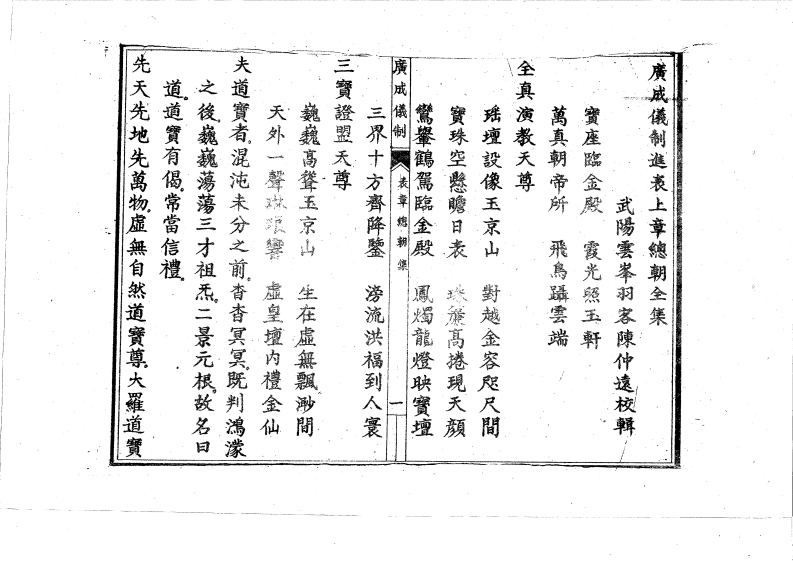 廣成儀制進表上章總朝全集
武陽雲峯羽客陳仲遠校輯
寶座臨金殿　霞光照玉軒
萬真朝帝所　飛舄躡雲端
全真演教天尊
瑶壇設像玉京山　對越金容咫尺間
寶珠空懸瞻日表　珠簾高捲現天顔
鸞輿鶴駕臨金殿　鳳燭龍燈映寶壇
廣成儀制　表章總朝集　一
三界十方齊降鑒　滂流洪福到人寰
三寶證盟天尊
巍巍高聳玉京山　生在虛無飄渺間
天外一聲琳琅響　虛皇壇内禮金仙
夫道寶者。混沌未分之前。杳杳冥冥。既判鴻濛
之後。巍巍蕩蕩三才祖炁。二景元根。故名曰
道。道寶有偈。常當信禮。
先天先地先萬物。虛無自然道寶尊。大羅道寶